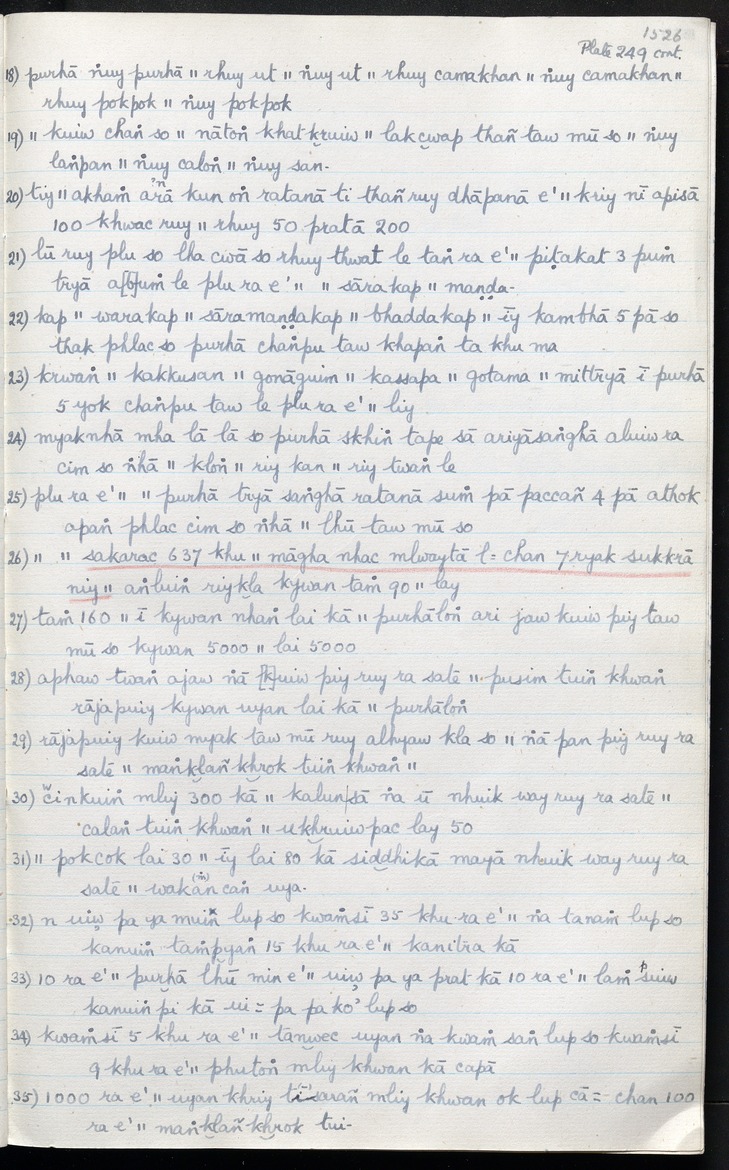 1526
Plate 249 cont.
18) purhā ṅuy purhā ॥ rhuy ut ॥ ṅuy ut ॥ rhuy camakhan ॥ ṅuy camakhan ॥
rhuy pokpok ॥ ṅuy pokpok
19) ॥ kuiw chaṅ so ॥ nātoṅ khat kruiw ॥ lakcwap thañ taw mū so ॥ ṅuy
laṅpan ॥ ṅuy caloṅ ॥ ṅuy san-
20) tiy ॥ akhaṁ arā kun oṅ ratanā ti thañ ruy dhāpanā e' ॥ kriy nī apisā
100 khwac ruy ॥ rhuy 50 pratā 200
21) lū ruy plu so lha cwā so rhuy thwat le taṅ ra e' ॥ piṭakat 3 puṁ
tryā a[b]uṁ le plu ra e' ॥ ॥ sārakap ॥ maṇḍa-
22) kap ॥ warakap ॥ sāramaṇḍakap ॥ bhaddakap ॥ īy kambhā 5 pā so
thak phlac so purhā chaṅpu taw khapaṅ ta khu ma
23) krwaṅ ॥ kakkusan ॥ gonāguim ॥ kassapa ॥ gotama ॥ mittryā ī purhā
5 yok chaṅpu taw le plu ra e' ॥ liy
24) myaknhā mha lā lā so purhā skhiṅ tape sā ariyāsaṅghā aluiw ra
cim so ṅhā ॥ kloṅ ॥ riy kan ॥ riy twaṅ le
25) plu ra e' ॥ ॥ purhā tryā saṅghā ratanā suṁ pā paccañ 4 pā athok
apaṅ phlac cim so ṅhā ॥ lhū taw mū so
26) ॥ ॥ sakarac 637 khu ॥ māgha nhac mlwaytā l= chan 7 ryak sukkrā
niy ॥ aṅbuiṅ riykla kywan taṁ 90 ॥ lay
27) taṁ 160 ॥ ī kywan nhaṅ lai kā ॥ purhāloṅ ari jaw kuiw piy taw
mū so kywan 5000 ॥ lai 5000
28) aphaw twaṅ ajaw ṅā [k]uiw piy ruy ra satē ॥ pusim tuiṅ khwaṅ
rājapuiy kywan uyan lai kā ॥ purhāloṅ
29) rājapuiy kuiw myak taw mū ruy alhyaw kla so ॥ ṅā pan piy ruy ra
satē ॥ maṅklañ khrok tuiṅ khwaṅ ॥
30) cinkuiṅ mliy 300 kā ॥ kalun sā ṅa ū nhuik way ruy ra satē ॥
calaṅ tuiṅ khwaṅ ॥ ukhruiw pac lay 50
31) ॥ pokcok lai 30 ॥ īy lai 80 kā siddhikā mayā nhuik way ruy ra
satē ॥ wakan can uya-
32) n uiw pa ya muiṅ lup so kwaṁsī 35 khu ra e' ॥ ṅa tanaṁ lup so
kanuiṅ taṁpyaṅ 15 khu ra e' ॥ kanitra kā
33) 10 ra e' ॥ purhā lhū min e' ॥ uiw pa ya prat kā 10 ra e' ॥ laṁ suiw
kanuiṅ pi kā ui = pa pa ko' lup so
34) kwaṁsī 5 khu ra e' ॥ tanwec uyan ṅa kwaṁ saṅ lup so kwaṁsī
9 khu ra e' ॥ phutoṅ mliy khwan kā capā
35) 1000 ra e' ॥ uyan khriy tī sarañ mliy khwan ok lup cā = chan 100
ra e' ॥ maṅklañ khrok tui-